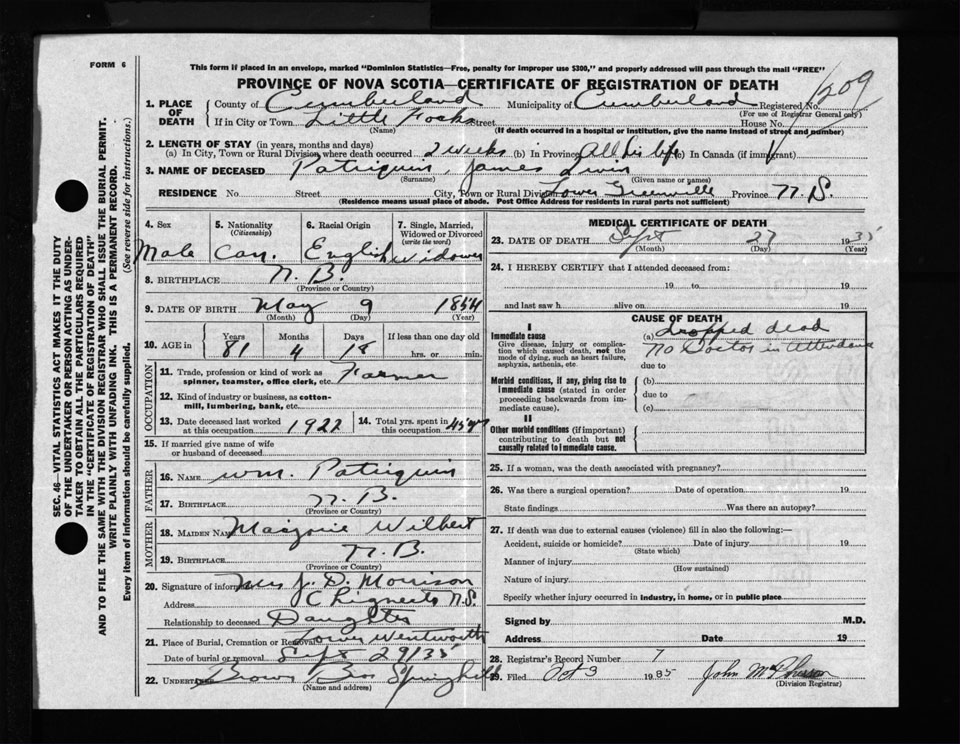 FORM 6
This form if placed in an envelope, marked "Dominion Statistics—Free, penalty for improper use $300," and properly addressed will pass through the mail "FREE"
PROVINCE OF NOVA SCOTIA—CERTIFICATE OF REGISTRATION OF DEATH
1. PLACE OF DEATH County of Cumberland Municipality of Cumberland Registered No. 1209
(For use of Registrar General only)
If in City or Town Little Forks Street House No.
(Name) (If death occurred in a hospital or institution, give the name instead of street and number)
2. LENGTH OF STAY (in years, months and days)
(a) In City, Town or Rural Division where death occurred 2 weeks (b) in Province All his life (c) in Canada (if immigrant)
3. NAME OF DECEASED Patriquin, James
(Surname) (Given name or names)
RESIDENCE No. Street City, Town or Rural Division Lower Greenville Province N.S.
(Residence means usual place of abode. Post Office Address for residents in rural parts not sufficient)
4. Sex 5. Nationality 6. Racial Origin 7. Single, Married, Widowed or Divorced
(Citizenship) (write the word)
Male Can. English Widower
8. BIRTHPLACE N.B.
(Province or Country)
9. DATE OF BIRTH May 9 1854
(Month) (Day) (Year)
10. AGE in Years Months Days If less than one day old
81 4 18 hrs. or min.
OCCUPATION
11. Trade, profession or kind of work as spinner, teamster, office clerk, etc. Farmer
12. Kind of industry or business, as cotton-mill, lumbering, bank, etc.
13. Date deceased last worked at this occupation 1922 14. Total yrs. spent in this occupation 45 yrs
15. If married give name of wife or husband of deceased
FATHER
16. NAME Wm. Patriquin
17. BIRTHPLACE N.B.
(Province or Country)
MOTHER
18. MAIDEN NAME Marjorie Wilbert
19. BIRTHPLACE N.B.
(Province or Country)
20. Signature of informant Mrs J. D. Morrison
Address Chignecto N.S.
Relationship to deceased Daughter
21. Place of Burial, Cremation or Removal Lower Wentworth
Date of burial or removal Sept 29/35
22. UNDERTAKER Brown Bros Springhill
(Name and address)
MEDICAL CERTIFICATE OF DEATH
23. DATE OF DEATH Sept 27 1935
(Month) (Day) (Year)
24. I HEREBY CERTIFY that I attended deceased from:
19 to 19
and last saw h alive on 19
CAUSE OF DEATH
I
Immediate cause (a) dropped dead
Give disease, injury or complication which caused death, not the mode of dying, such as heart failure, asphyxia, asthenia, etc
No Doctor in Attendance
due to
Morbid conditions, if any, giving rise to immediate cause (stated in order proceeding backwards from immediate cause).
(b)
due to
(c)
II
Other morbid conditions (if important) contributing to death but not causally related to immediate cause.
25. If a woman, was the death associated with pregnancy?
26. Was there a surgical operation? Date of operation 19
State findings Was there an autopsy?
27. If death was due to external causes (violence) fill in also the following:—
Accident, suicide or homicide? Date of injury 19
(State which)
Manner of injury
(How sustained)
Nature of injury
Specify whether injury occurred in industry, in home, or in public place
Signed by M.D.
Address Date 19
28. Registrar's Record Number 7
29. Filed Oct 3 1935 John McPherson
(Division Registrar)
SEC. 46—VITAL STATISTICS ACT MAKES IT THE DUTY
OF THE UNDERTAKER OR PERSON ACTING AS UNDER-
TAKER TO OBTAIN ALL THE PARTICULARS REQUIRED
IN THE "CERTIFICATE OF REGISTRATION OF DEATH"
AND TO FILE THE SAME WITH THE DIVISION REGISTRAR WHO SHALL ISSUE THE BURIAL PERMIT.
WRITE PLAINLY WITH UNFADING INK. THIS IS A PERMANENT RECORD.
Every item of information should be carefully supplied. (See reverse side for instructions.)